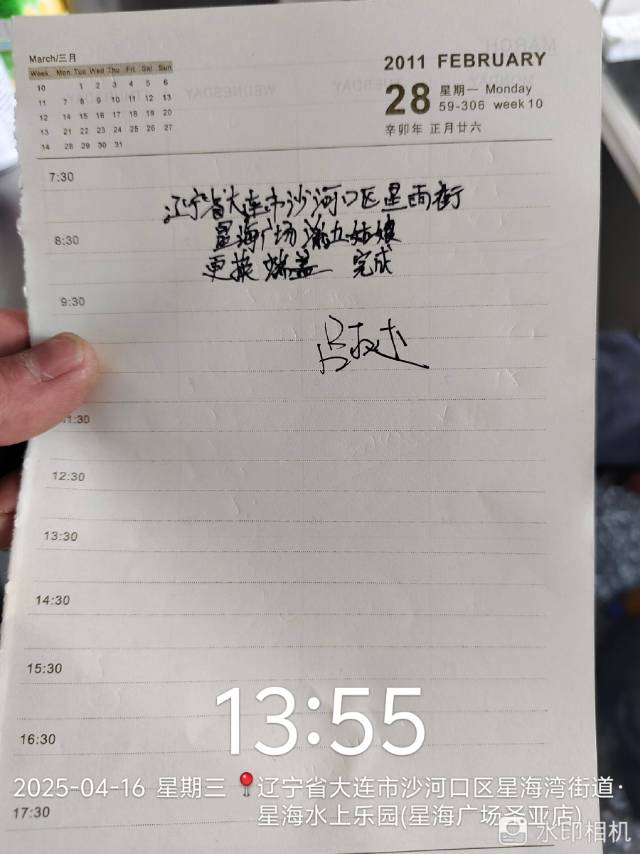 March/三月
Week Mon Tue Wed Thu Fri Sat Sun
10 1 2 3 4 5 6
11 7 8 9 10 11 12 13
12 14 15 16 17 18 19 20
13 21 22 23 24 25 26 27
14 28 29 30 31
2011 FEBRUARY
28 星期一 Monday
59-306 week10
辛卯年 正月廿六
7:30
辽宁省大连市沙河口区星雨街
8:30
星海广场 五姑娘
更换 盖 完成
9:30
11:30
12:30
13:30
14:30
15:30
16:30
17:30
13:55
2025-04-16 星期三 辽宁省大连市沙河口区星海湾街道·
星海水上乐园(星海广场圣亚店)
水印相机